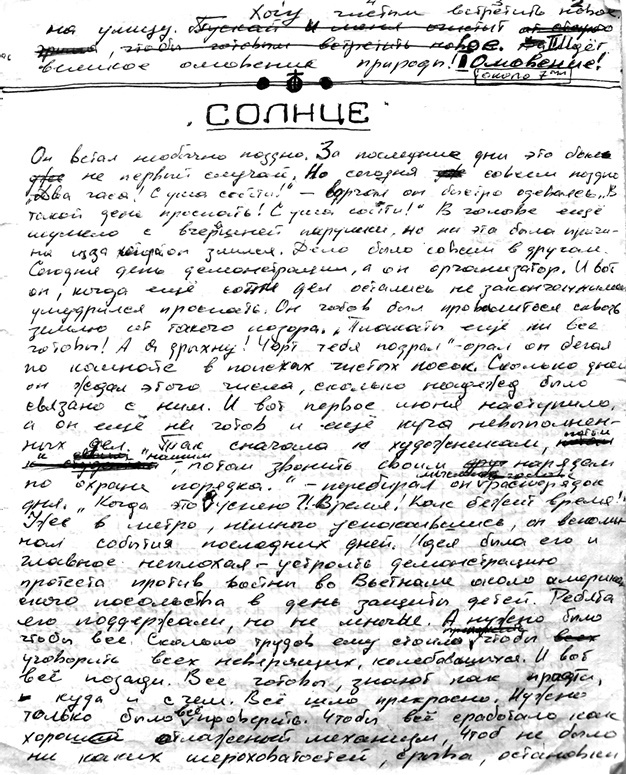 Хочу чистым встретить новое
на улицу. Пускай и меня очистит от старого
, чтобы готовым встретить новое. Идёт
великое омовение природы! Омовение!
около 7ми
СОЛНЦЕ
Он встал необычно поздно. За последние дни это было
уже не первый случай. Но сегодня совсем поздно
„два часа! С ума сойти!" – ворчал он быстро одеваясь. „В
такой день проспать! С ума сойти!" В голове ещё
шумело с вчерашней пирушки, но не эта была причи-
на из-за которой он злился. Дело было совсем в другом.
Сегодня день демонстрации, а он организатор. И вот
он, когда ещё сотни дел остались не законченными
умудрился проспать. Он готов был провалиться сквозь
землю от такого позора. „Плакаты ещё не все
готовы! А я дрыхну! Чорт тебя подрал" – орал он бегая
по комнате в поисках чистых носок. Сколько дней
он ждал этого числа, сколько надежд было
связано с ним. И вот первое июня наступило,
а он ещё не готов и ещё куча невыполнен-
ных дел. „Так сначала к художникам, потом
к "нашим", потом звонить своим нарядам
по охране порядка." – перебирал он мысленно распорядок
дня. „Когда это я успею?! Время! Как бежит время!"
Уже в метро, немного успокоившись, он вспоми-
нал события последних дней. Идея была его и
главное неплохая – устроить демонстрацию
протеста против войны во Вьетнаме около американ
ского посольства в день защиты детей. Ребята
его поддержали, но не многие. А нужно было
чтобы все. Сколько трудов ему стоило, чтобы
уговорить всех неверящих, колебавшихся. И вот
всё позади. Все готовы, знают как пройти,
куда и с чем. Всё шло прекрасно. Нужно
только было всё проверить. Чтобы всё сработало как
хорошо отлаженный механизм, чтоб не было
ни каких шероховатостей, срыва, остановки